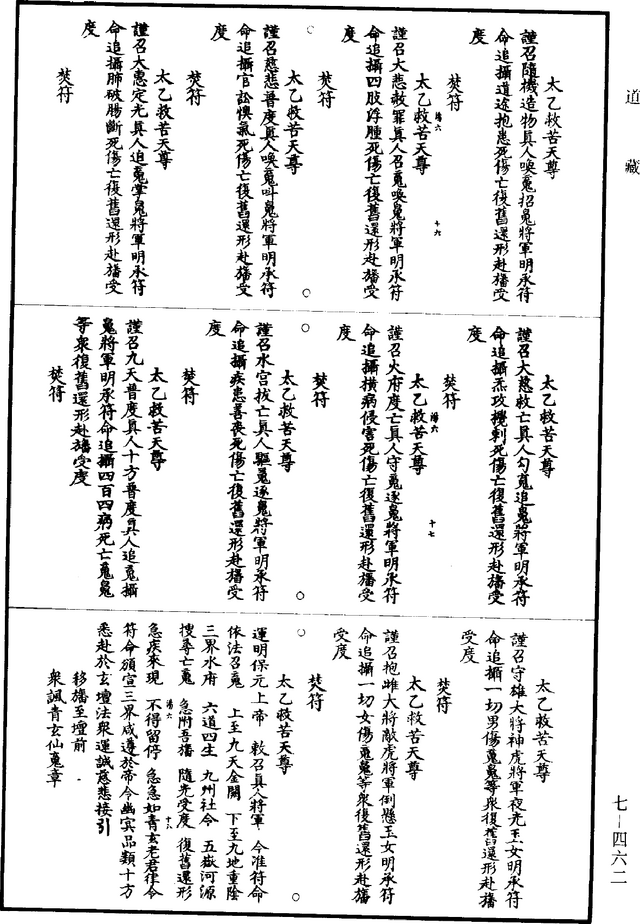 道藏
太乙救苦天尊
謹召隨機造物真人喚䰟招䰟將軍明承符
命追攝道途抱患死傷亡復舊還形赴旛受
度
焚符
太乙救苦天尊
謹召大悲赦罪真人召䰟喚䰟將軍明承符
命追攝四肢浮腫死傷亡復舊還形赴旛受
度
焚符
太乙救苦天尊
謹召慈悲普度真人喚䰟叫䰟將軍明承符
命追攝官訟懊氣死傷亡復舊還形赴旛受
度
焚符
太乙救苦天尊
謹召大惠定光真人追䰟掌䰟將軍明承符
命追攝肺破腸斷死傷亡復舊還形赴旛受
度
焚符
太乙救苦天尊
謹召大慈救亡真人勾䰟追䰟將軍明承符
命追攝炁攻攪刺死傷亡復舊還形赴旛受
度
焚符
太乙救苦天尊
謹召火府度亡真人守䰟逐䰟將軍明承符
命追攝橫病侵害死傷亡復舊還形赴旛受
度
焚符
太乙救苦天尊
謹召水宫拔亡真人驅䰟逐䰟將軍明承符
命追攝疾患善喪死傷亡復舊還形赴旛受
度
焚符
太乙救苦天尊
謹召九天普度真人十方普度真人追䰟攝
䰟將軍明承符命追攝四百四病死亡䰟䰟
等衆復舊還形赴旛受度
焚符
太乙救苦天尊
謹召守雄大將神虎將軍夜光玉女明承符
命追攝一切男傷䰟䰟等衆復舊還形赴旛
受度
焚符
太乙救苦天尊
謹召抱雌大將敵虎將軍倒懸玉女明承符
命追攝一切女傷䰟䰟等衆復舊還形赴旛
受度
焚符
太乙救苦天尊
運明保元上帝 敕召真人將軍 今准符命
依法召䰟 上至九天金闕 下至九地重陰
三界水府 六道四生 九州社令 五嶽河源
搜尋亡䰟 急附吾旛 隨光受度 復舊還形
急疾來現 不得留停 急急如青玄老君律令
符命頒宣三界咸遵於帝令幽賓品類十方
悉赴於玄壇法衆運誠慈悲接引
移旛至壇前
衆諷青玄仙䰟章
七－四六二